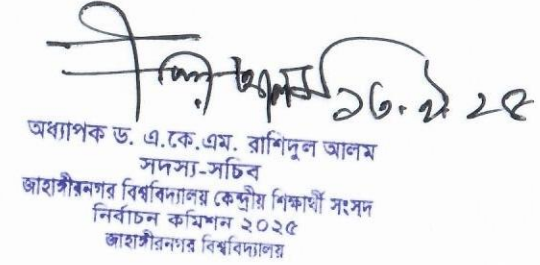 আলম ১৩.৯.২৫
অধ্যাপক ড. এ.কে.এম. রাশিদুল আলম
সদস্য-সচিব
জাহাঙ্গীরনগর বিশ্ববিদ্যালয় কেন্দ্রীয় শিক্ষার্থী সংসদ
নির্বাচন কমিশন ২০২৫
জাহাঙ্গীরনগর বিশ্ববিদ্যালয়